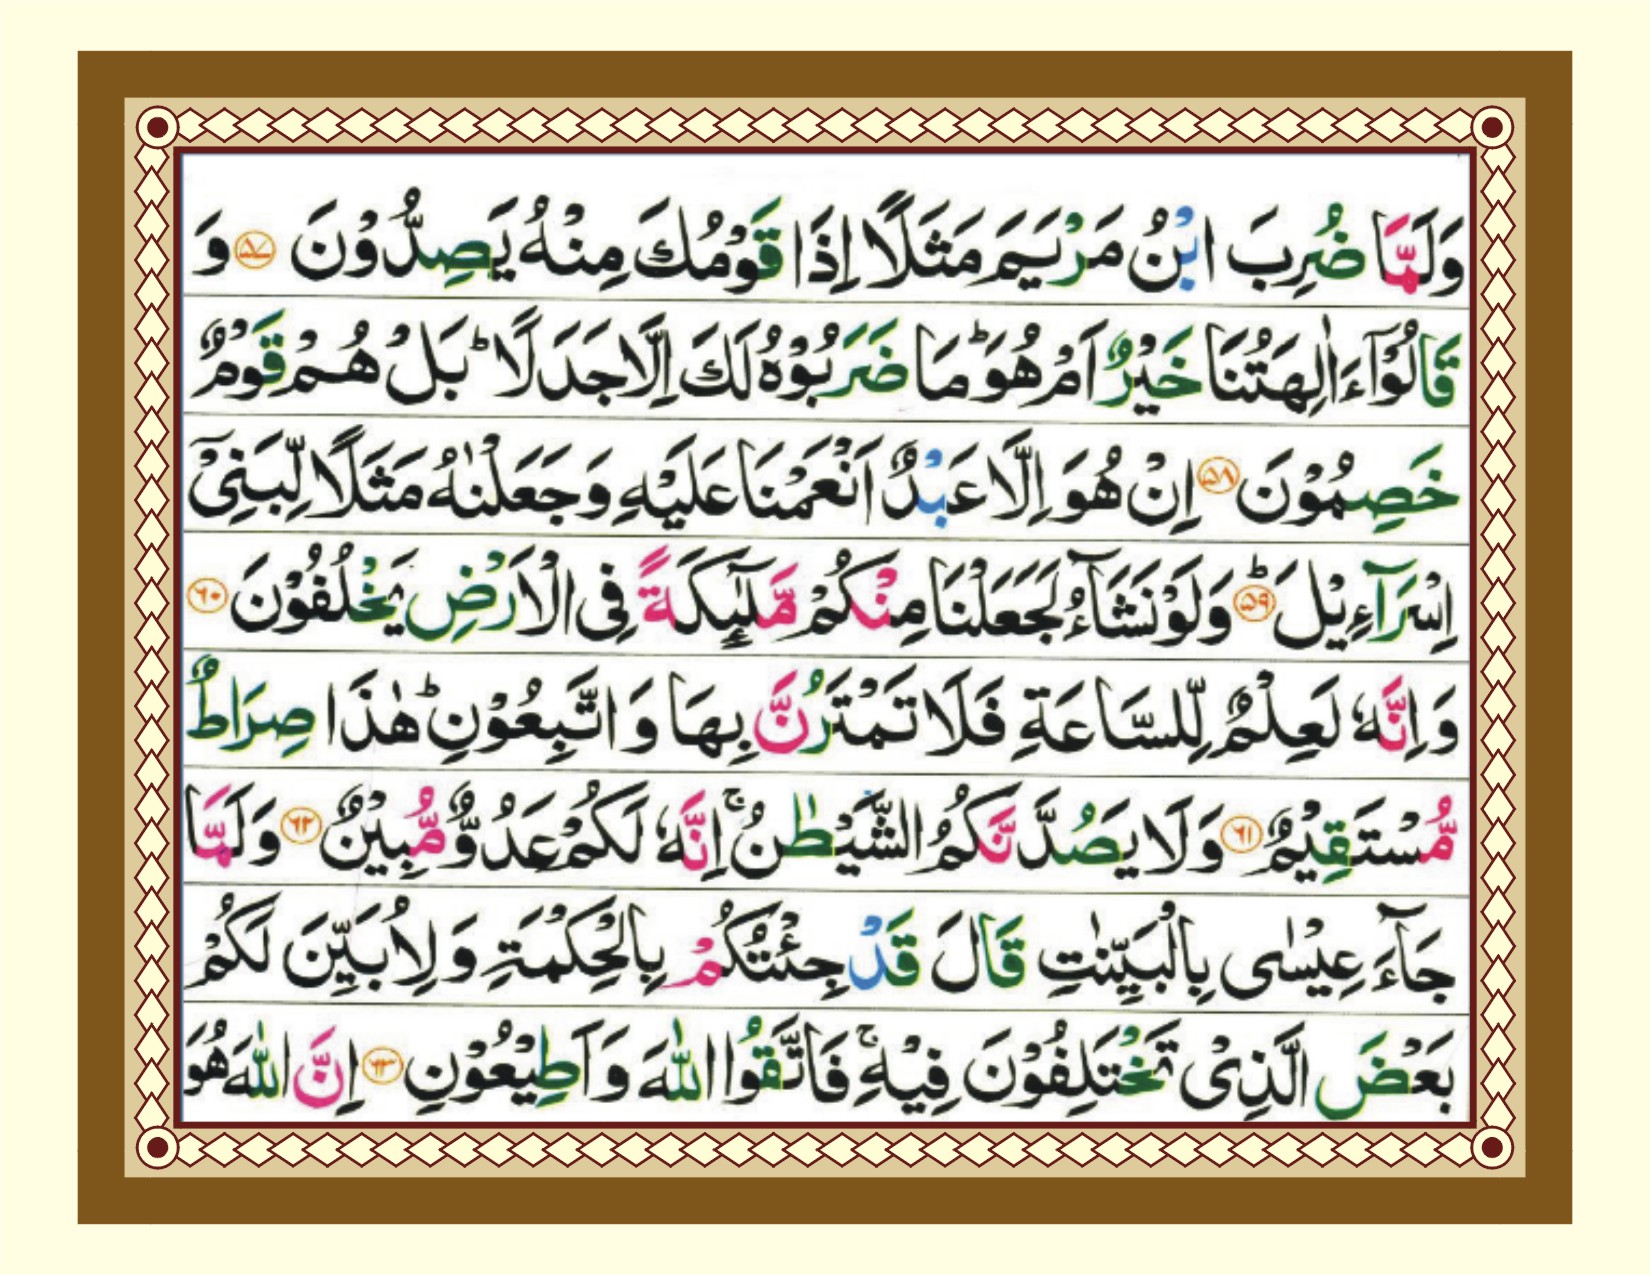 وَلَمَّا ضُرِبَ ابْنُ مَرْيَمَ مَثَلًا اِذَا قَوْمُكَ مِنْهُ يَصِدُّوْنَ ۝۵۷ وَ
قَالُوْٓا ءَاٰلِهَتُنَا خَيْرٌ اَمْ هُوَ ؕ مَا ضَرَبُوْهُ لَكَ اِلَّا جَدَلًا ؕ بَلْ هُمْ قَوْمٌ
خَصِمُوْنَ ۝۵۸ اِنْ هُوَ اِلَّا عَبْدٌ اَنْعَمْنَا عَلَيْهِ وَجَعَلْنٰهُ مَثَلًا لِّبَنِيْٓ
اِسْرَآءِيْلَ ؕ ۝۵۹ وَلَوْ نَشَآءُ لَجَعَلْنَا مِنْكُمْ مَّلٰٓئِكَةً فِى الْاَرْضِ يَخْلُفُوْنَ ۝۶۰
وَ اِنَّهٗ لَعِلْمٌ لِّلسَّاعَةِ فَلَا تَمْتَرُنَّ بِهَا وَ اتَّبِعُوْنِ ؕ هٰذَا صِرَاطٌ
مُّسْتَقِيْمٌ ۝۶۱ وَلَا يَصُدَّنَّكُمُ الشَّيْطٰنُ ۚ اِنَّهٗ لَكُمْ عَدُوٌّ مُّبِيْنٌ ۝۶۲ وَلَمَّا
جَآءَ عِيْسٰى بِالْبَيِّنٰتِ قَالَ قَدْ جِئْتُكُمْ بِالْحِكْمَةِ وَ لِاُبَيِّنَ لَكُمْ
بَعْضَ الَّذِىْ تَخْتَلِفُوْنَ فِيْهِ ۚ فَاتَّقُوا اللّٰهَ وَ اَطِيْعُوْنِ ۝۶۳ اِنَّ اللّٰهَ هُوَ